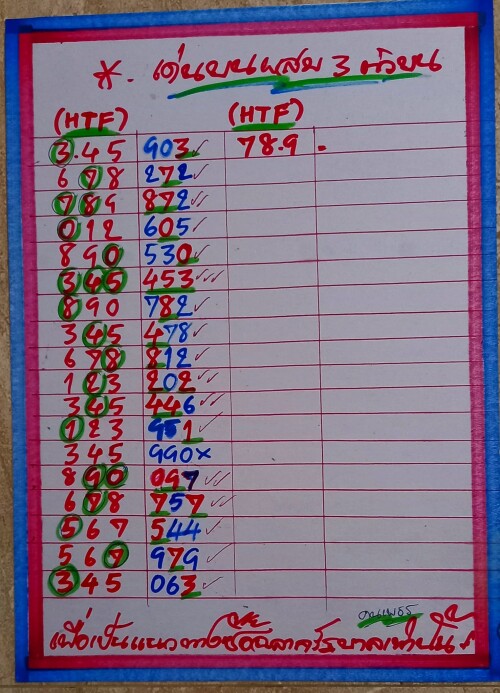 *. เด่นบนผสม 3 ตัวบน
(HTF) (HTF)
3.45 903✓ 78.9.
678 272✓
789 872✓
012 605✓
890 530✓
345 453✓✓✓
890 782✓
345 478✓
678 812✓
123 202✓✓
345 446✓✓
123 951✓
345 990×
890 097✓✓
678 757✓✓
567 544✓
567 979✓
345 063✓
เพื่อเป็นแนวทางซื้อฉลากรัฐบาลเท่านั้น